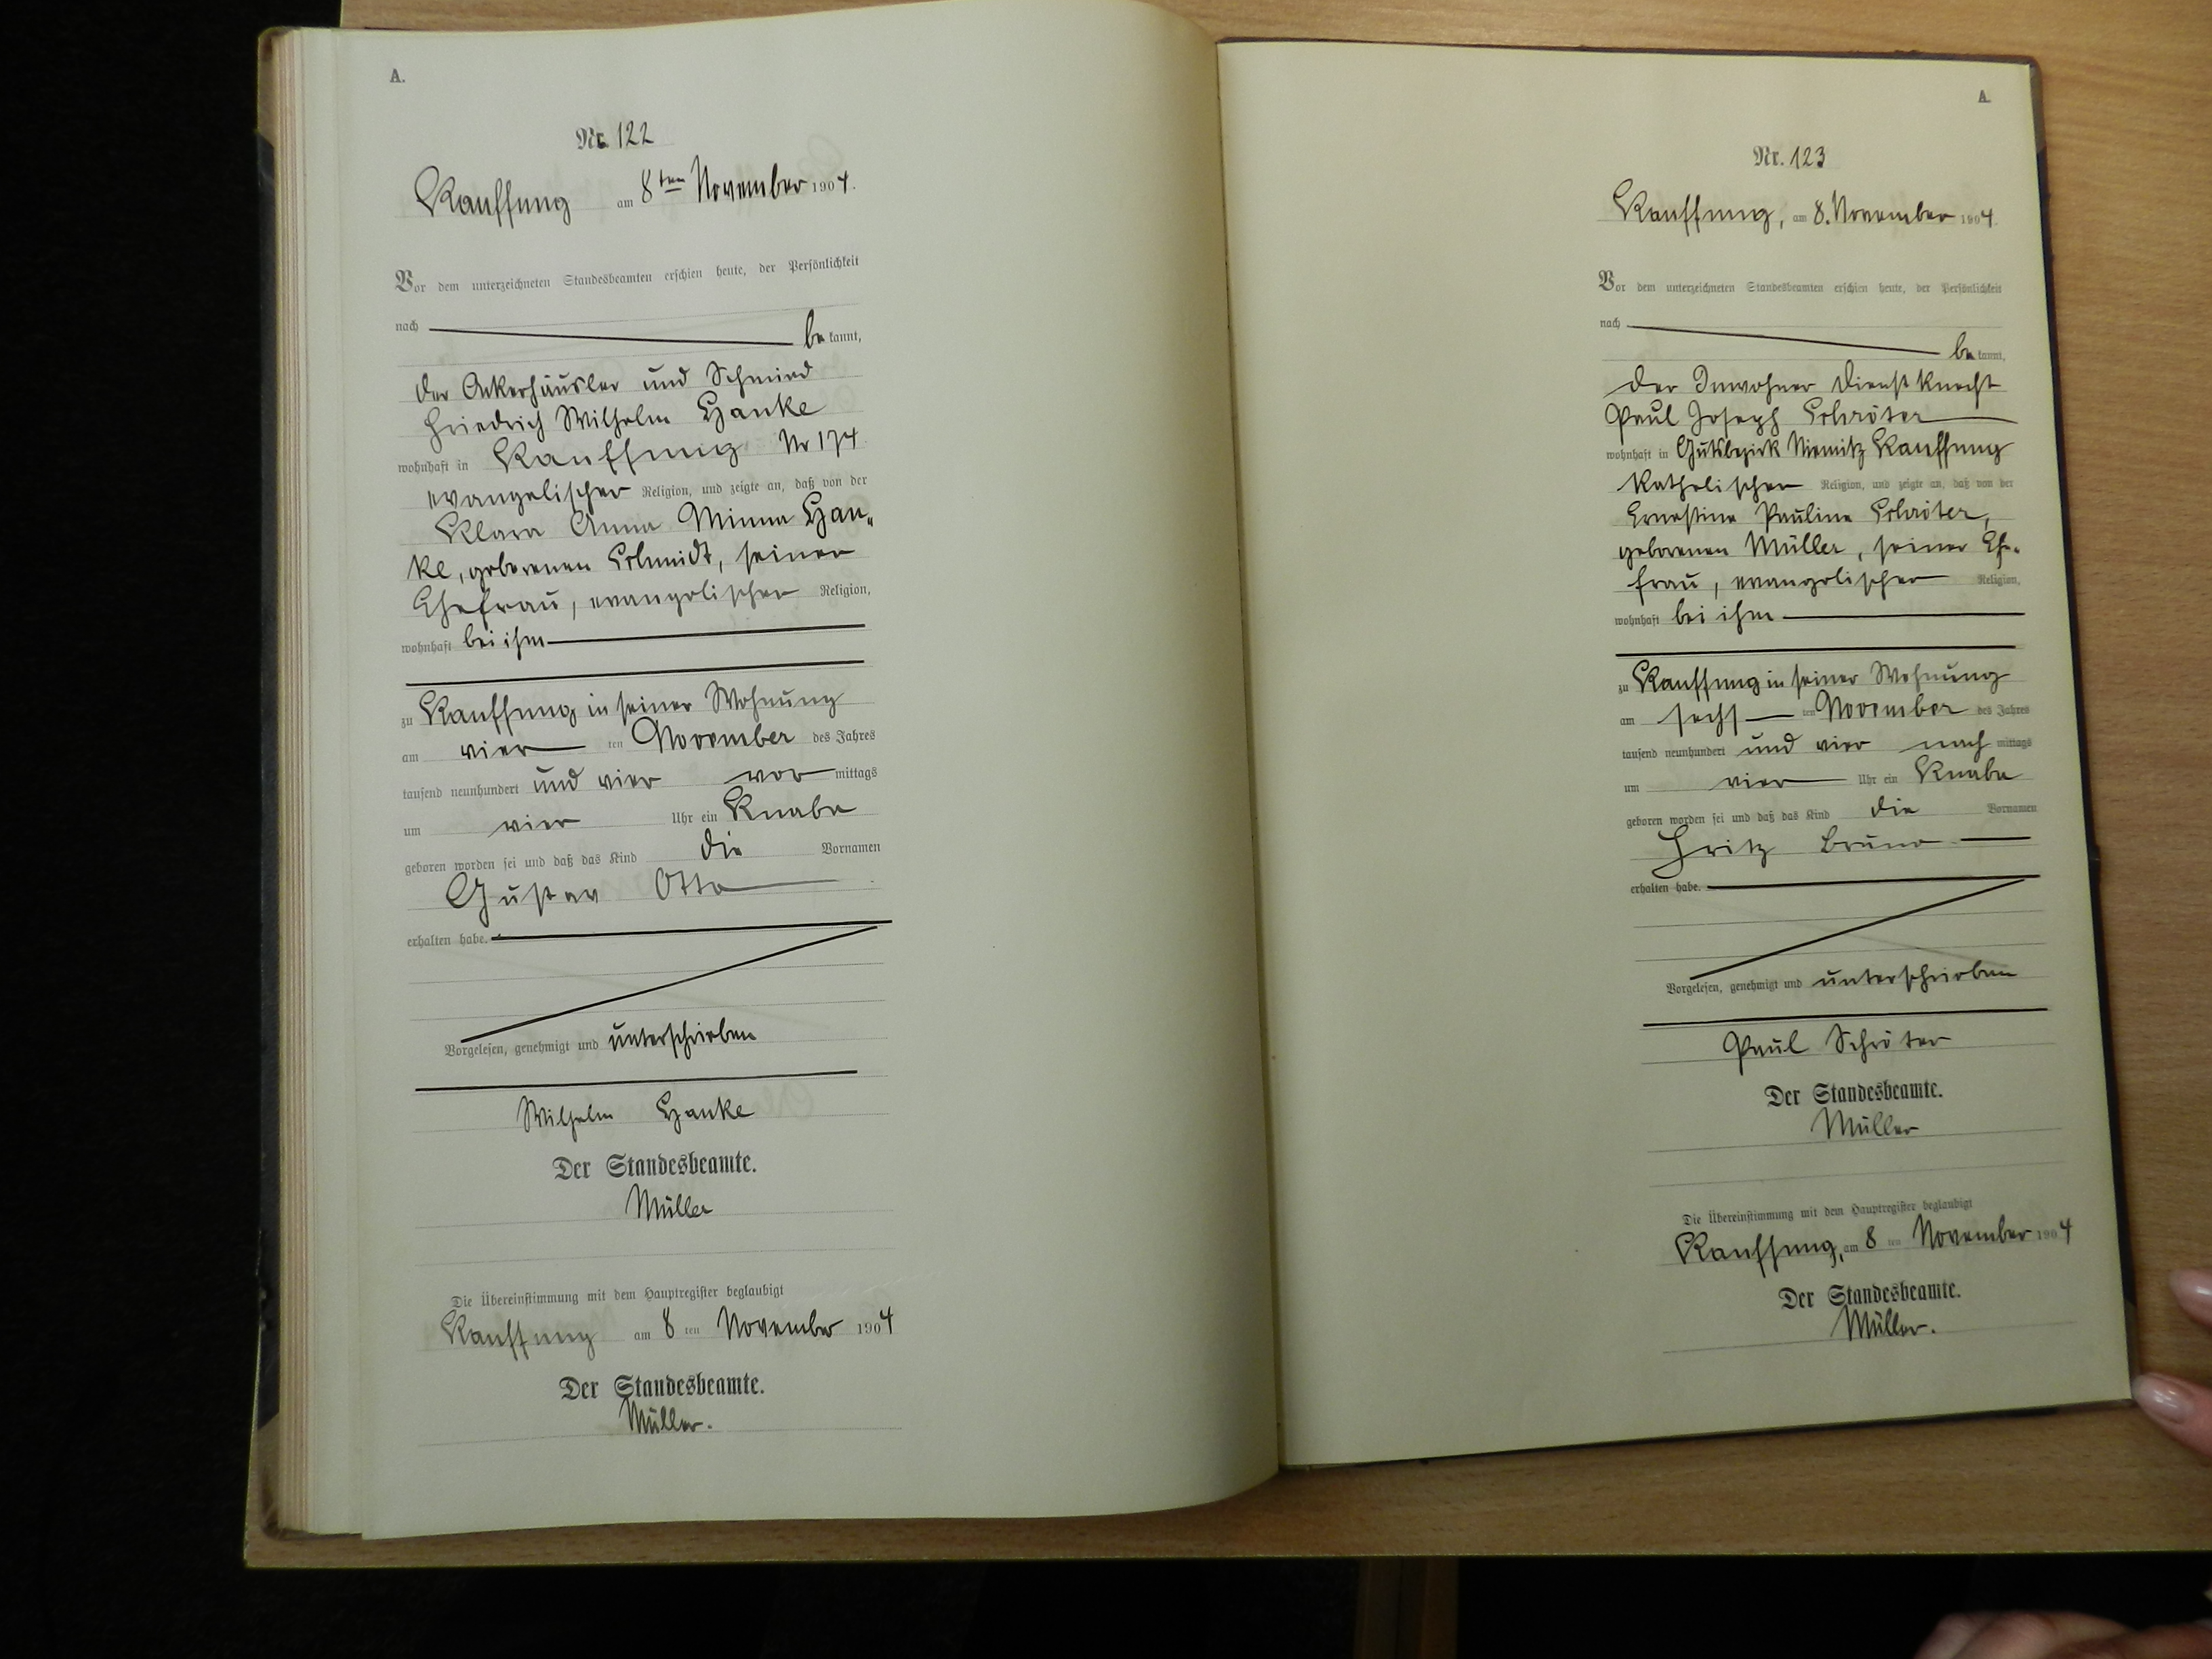 A.
Nr. 122
Kauffung am 8ten November 1904.
Vor dem unterzeichneten Standesbeamten erschien heute, der Persönlichkeit
nach bekannt,
der Ackerhäusler und Schmied
Friedrich Wilhelm Hanke
wohnhaft in Kauffung Nr 174
evangelischer Religion, und zeigte an, daß von der
Klara Anna Minna Han„
ke, geborenen Schmidt, seiner
Ehefrau, evangelischer Religion,
wohnhaft bei ihm
zu Kauffung in seiner Wohnung
am vier ten November des Jahres
tausend neunhundert und vier vor mittags
um vier Uhr ein Knabe
geboren worden sei und daß das Kind die Vornamen
Gustav Otto
erhalten habe.
Vorgelesen, genehmigt und unterschrieben
Wilhelm Hanke
Der Standesbeamte.
Müller
Die Übereinstimmung mit dem Hauptregister beglaubigt
Kauffung am 8 ten November 1904
Der Standesbeamte.
Müller.
A.
Nr. 123
Kauffung, am 8. November 1904.
Vor dem unterzeichneten Standesbeamten erschien heute, der Persönlichkeit
nach bekannt,
der Inwohner Dienstknecht
Paul Joseph Schröter
wohnhaft in Gutsbezirk Niemitz Kauffung
katholischer Religion, und zeigte an, daß von der
Ernestine Pauline Schröter,
geborenen Müller, seiner Ehe„
frau, evangelischer Religion,
wohnhaft bei ihm
zu Kauffung in seiner Wohnung
am sechs ten November des Jahres
tausend neunhundert und vier nach mittags
um vier Uhr ein Knabe
geboren worden sei und daß das Kind die Vornamen
Fritz Bruno
erhalten habe.
Vorgelesen, genehmigt und unterschrieben
Paul Schröter
Der Standesbeamte.
Müller
Die Übereinstimmung mit dem Hauptregister beglaubigt
Kauffung, am 8 ten November 1904
Der Standesbeamte.
Müller.